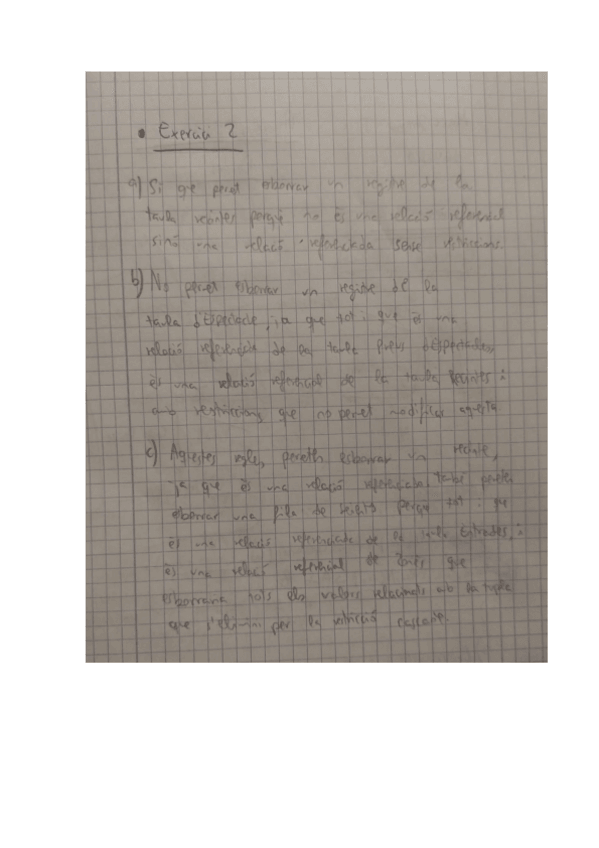 • Exercici 2
a) Sí que permet esborrar un registre de la
taula recintes perquè no és una relació referencial
sinó una relació referenciada sense restriccions.
b) No permet esborrar un registre de la
taula d'Espectacle, ja que tot i que és una
relació referencia de la taula Preus d'Espectacles,
és una relació referencial de la taula Recintes i
amb restriccions que no permet modificar aquesta
c) Aquestes regles, permeten esborrar un recinte,
ja que és una relació referenciada, també permet
esborrar una fila de perquè tot i que
és una relació referenciada de la taula Entrades, i
és una relació referencial de Zones que
esborrarà tots els valors relacionats amb la taula
que s'elimini per la restricció cascade.